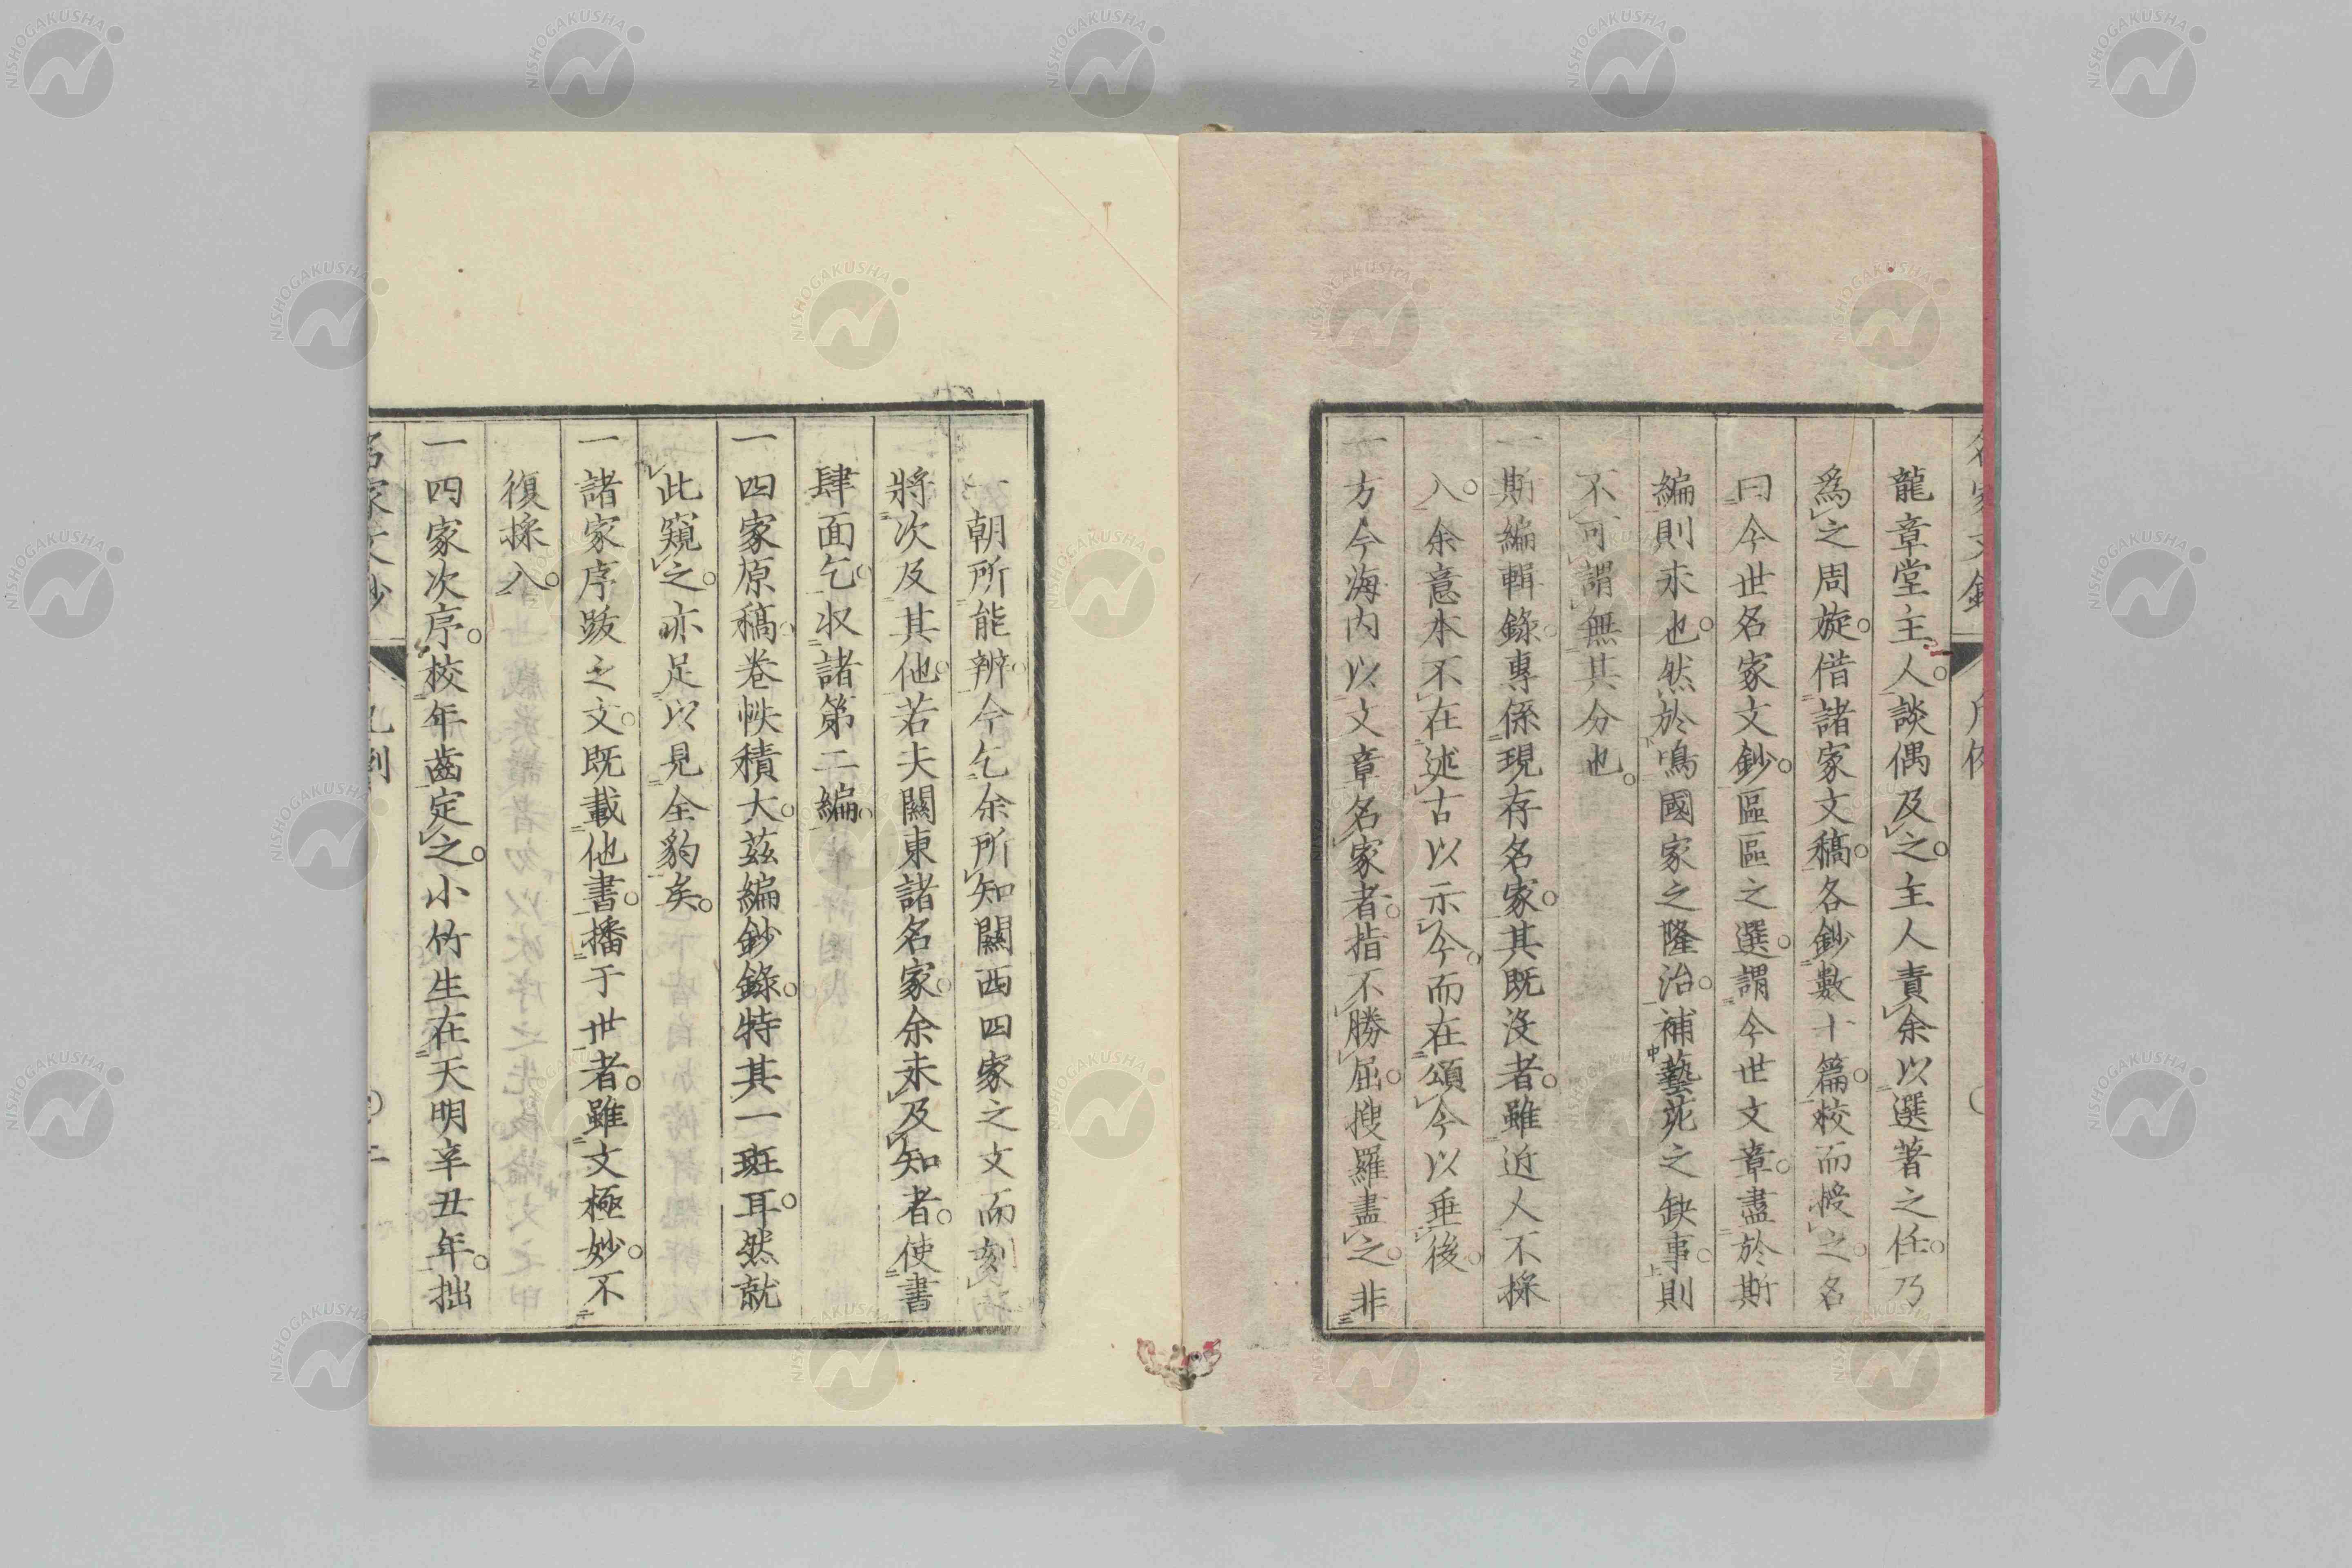 龍章堂主人。談偶及之。主人責余以選著之任。乃
爲之周旋。借諸家文稿。各鈔數十篇。校而授之。名
曰今世名家文鈔。區區之選。謂今世文章。盡於斯
編則未也。然於鳴國家之隆治。補藝苑之缺事。則
不可謂無其分也。
一斯編輯錄。專係現存名家。其既沒者。雖近人不採
入。余意本不在述古以示今。而在頌今以垂後。
一方今海内以文章名家者。指不勝屈。搜羅盡之。非
一朝所能辨。今乞余所知關西四家之文而刻
將次及其他。若夫關東諸名家。余未及知者。使書
肆面乞。收諸第二編。
一四家原稿。卷帙積大。茲編鈔錄。特其一斑耳。然就
此窺之。亦足以見全豹矣。
一諸家序跋之文。既載他書。播于世者。雖文極妙。不
復採入。
一四家次序。校年齒定之。小竹生在天明辛丑年。拙
名家文鈔 凡例 二
NISHOGAKUSHA